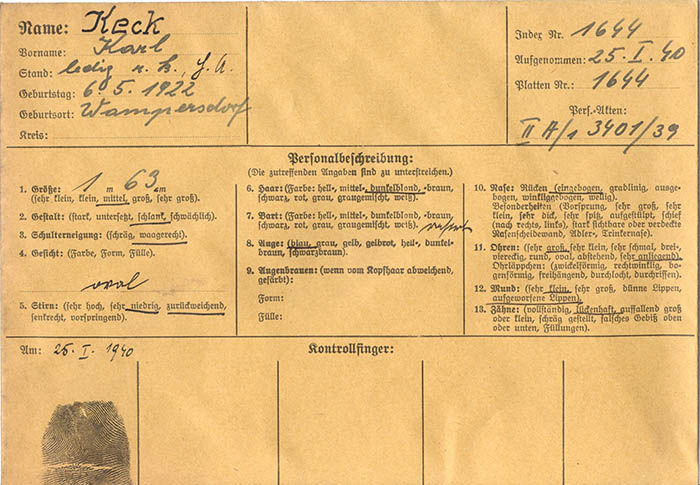 Name: Keck
Vorname: Karl
Stand: ledig r. k., H. A.
Geburtstag: 6. 5. 1922
Geburtsort: Wampersdorf
Kreis:
Index Nr. 1644
Aufgenommen: 25. I. 40
Platten Nr.: 1644
Pers.-Akten:
II A/1 3401/39
Personalbeschreibung:
(Die zutreffenden Angaben sind zu unterstreichen.)
1. Größe: 1 m 63 cm
(sehr klein, klein, mittel, groß, sehr groß).
2. Gestalt: (stark, untersetzt, schlank, schwächlich).
3. Schulterneigung: (schräg, waagerecht).
4. Gesicht: (Farbe, Form, Fülle).
oval
5. Stirn: (sehr hoch, sehr niedrig, zurückweichend,
senkrecht, vorspringend).
6. Haar: (Farbe: hell-, mittel-, dunkelblond, -braun,
schwarz, rot, grau, graugemischt, weiß).
7. Bart: (Farbe: hell-, mittel-, dunkelblond, -braun,
schwarz, rot, grau, graugemischt, weiß). rasiert
8. Auge: (blau, grau, gelb, gelbrot, hell-, dunkel-
braun, schwarzbraun).
9. Augenbrauen: (wenn vom Kopfhaar abweichend,
gefärbt):
Form:
Fülle:
10. Nase: Rücken (eingebogen, gradlinig, ausge-
bogen, winkliggebogen, wellig).
Besonderheiten (Vorsprung, sehr groß, sehr
klein, sehr dick, sehr spitz, aufgestülpt, schief
(nach rechts, links), stark sichtbare oder verdeckte
Nasenscheidewand, Adler-, Trinkernase).
11. Ohren: (sehr groß, sehr klein, sehr schmal, drei-,
viereckig, rund, oval, abstehend, sehr anliegend).
Ohrläppchen: (zwickelförmig, rechtwinklig, bo-
genförmig, freihängend, durchlocht, durchrissen).
12. Mund: (sehr klein, sehr groß, dünne Lippen,
aufgeworfene Lippen).
13. Zähne: (vollständig, lückenhaft, auffallend groß
oder klein, schräg gestellt, falsches Gebiß oben
oder unten, Füllungen).
Am: 25. I. 1940
Kontrollfinger: